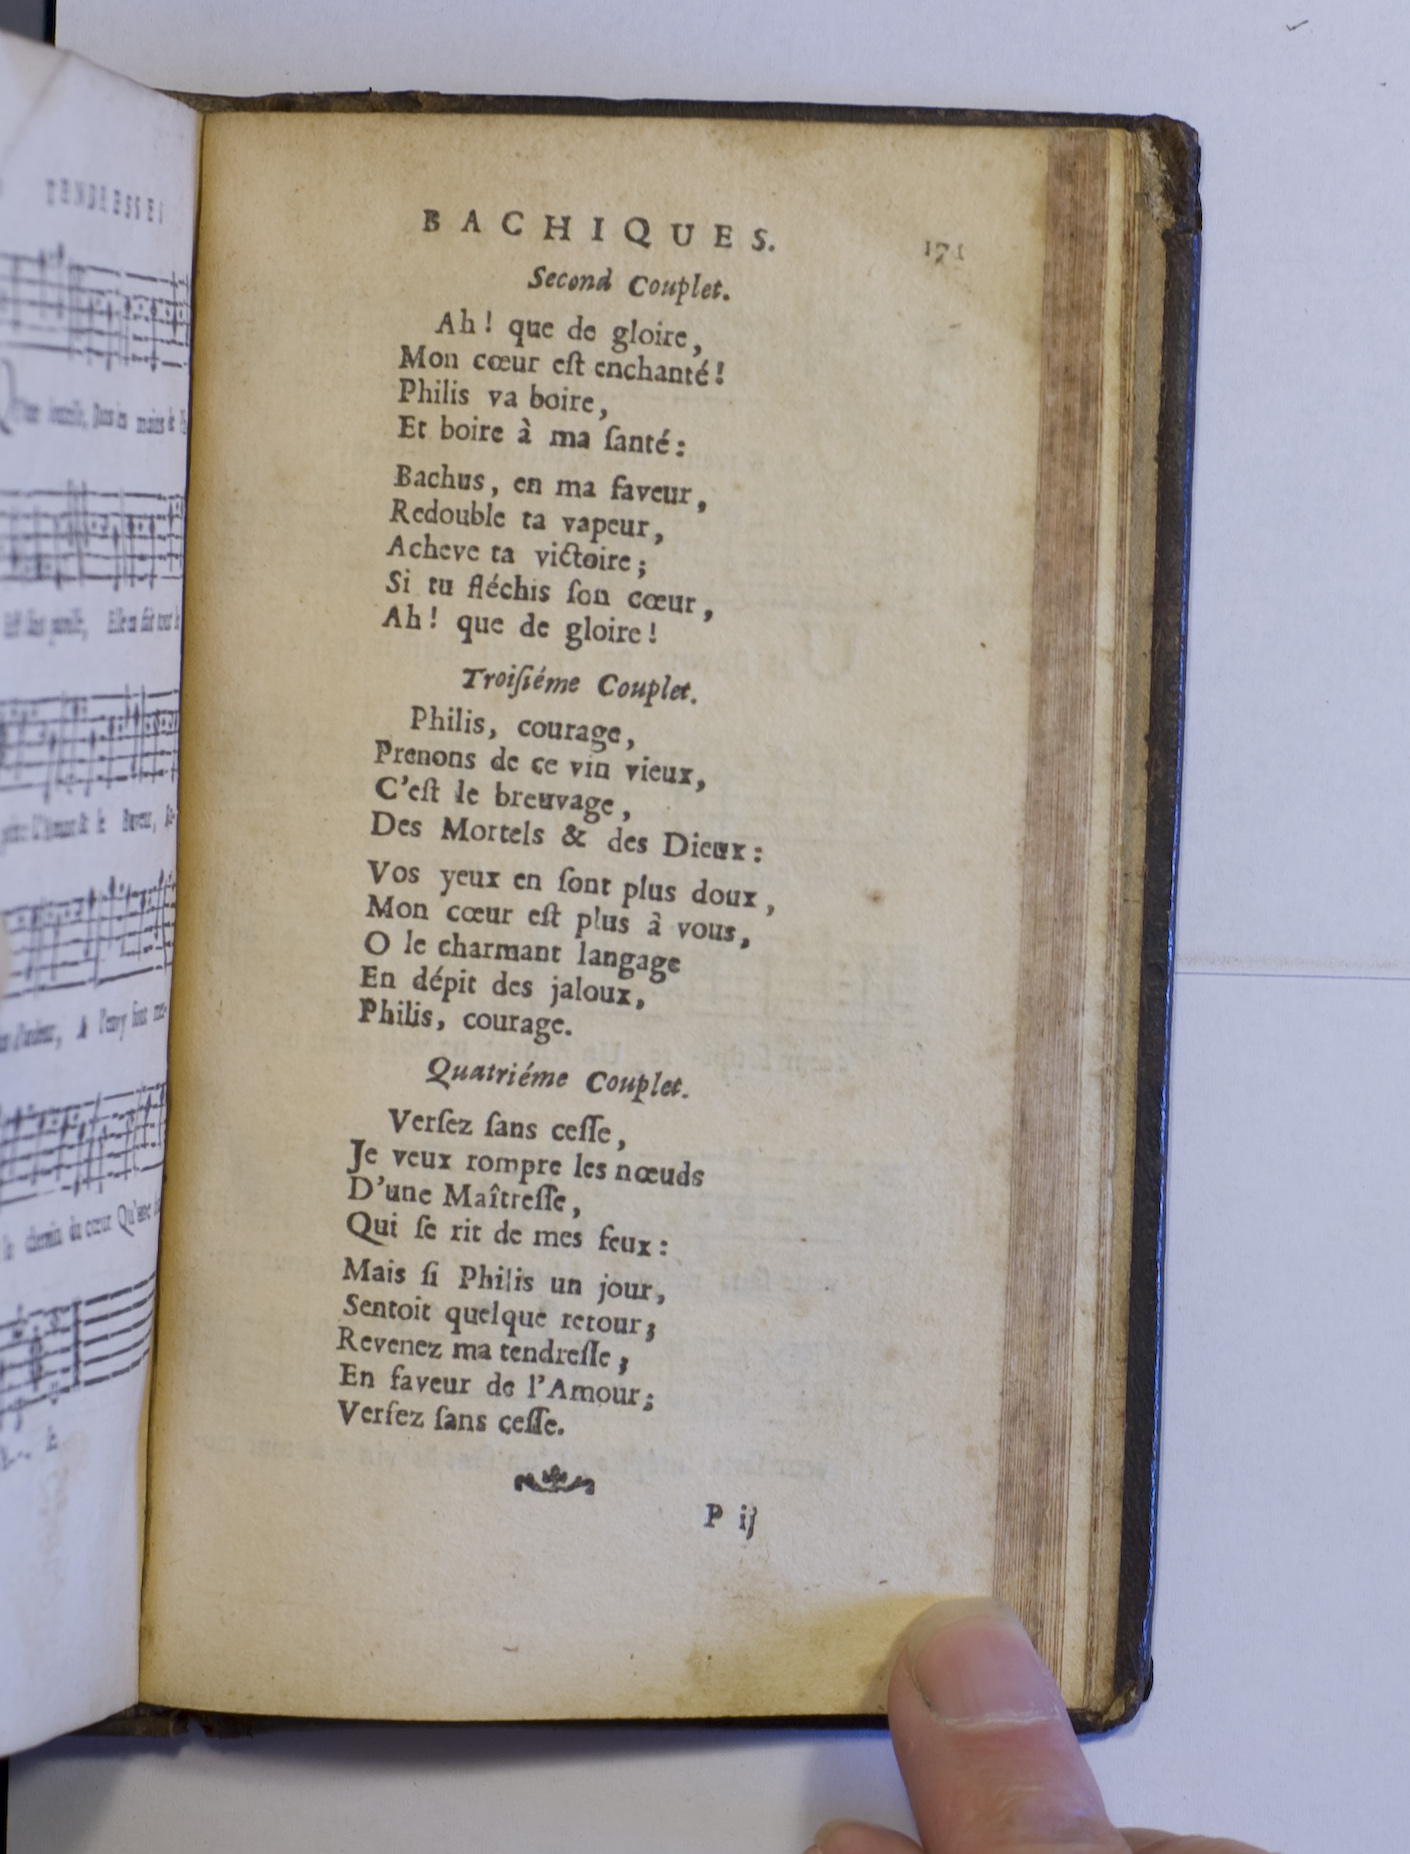 TENDRESSES
BACHIQUES. 171
Second Couplet.
Ah! que de gloire,
Mon cœur eſt enchanté!
Philis va boire,
Et boire à ma ſanté:
Bachus, en ma faveur,
Redouble ta vapeur,
Acheve ta victoire;
Si tu fléchis ſon cœur,
Ah! que de gloire!
Troiſiéme Couplet.
Philis, courage,
Prenons de ce vin vieux,
C'eſt le breuvage,
Des Mortels & des Dieux:
Vos yeux en ſont plus doux,
Mon cœur eſt plus à vous,
O le charmant langage
En dépit des jaloux,
Philis, courage.
Quatriéme Couplet.
Verſez ſans ceſſe,
Je veux rompre les nœuds
D'une Maîtreſſe,
Qui ſe rit de mes feux:
Mais ſi Philis un jour,
Sentoit quelque retour;
Revenez ma tendreſſe;
En faveur de l'Amour;
Verſez ſans ceſſe.
P ij